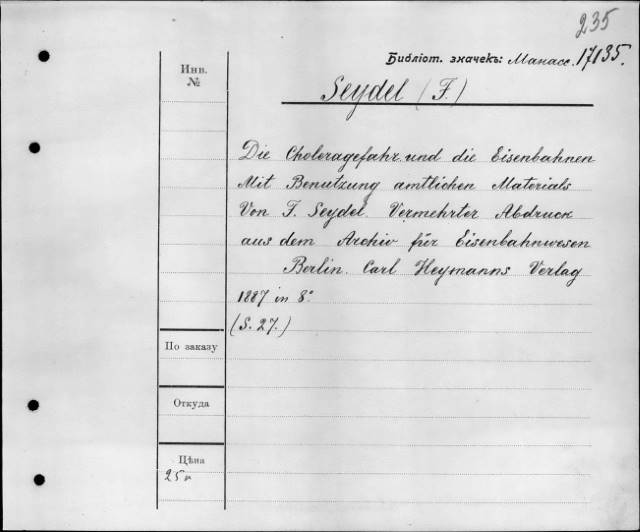 235
Библіот. значекъ: Манасс. 17135.
Инв.
№
Seydel (F.)
Die Choleragefahr und die Eisenbahnen
Mit Benutzung amtlichen Materials
Von F. Seydel. Vermehrter Abdruck
aus dem Archiv für Eisenbahnwesen
Berlin. Carl Heymanns Verlag
1887 in 8°
(S. 27.)
По заказу
Откуда
Цѣна
25к